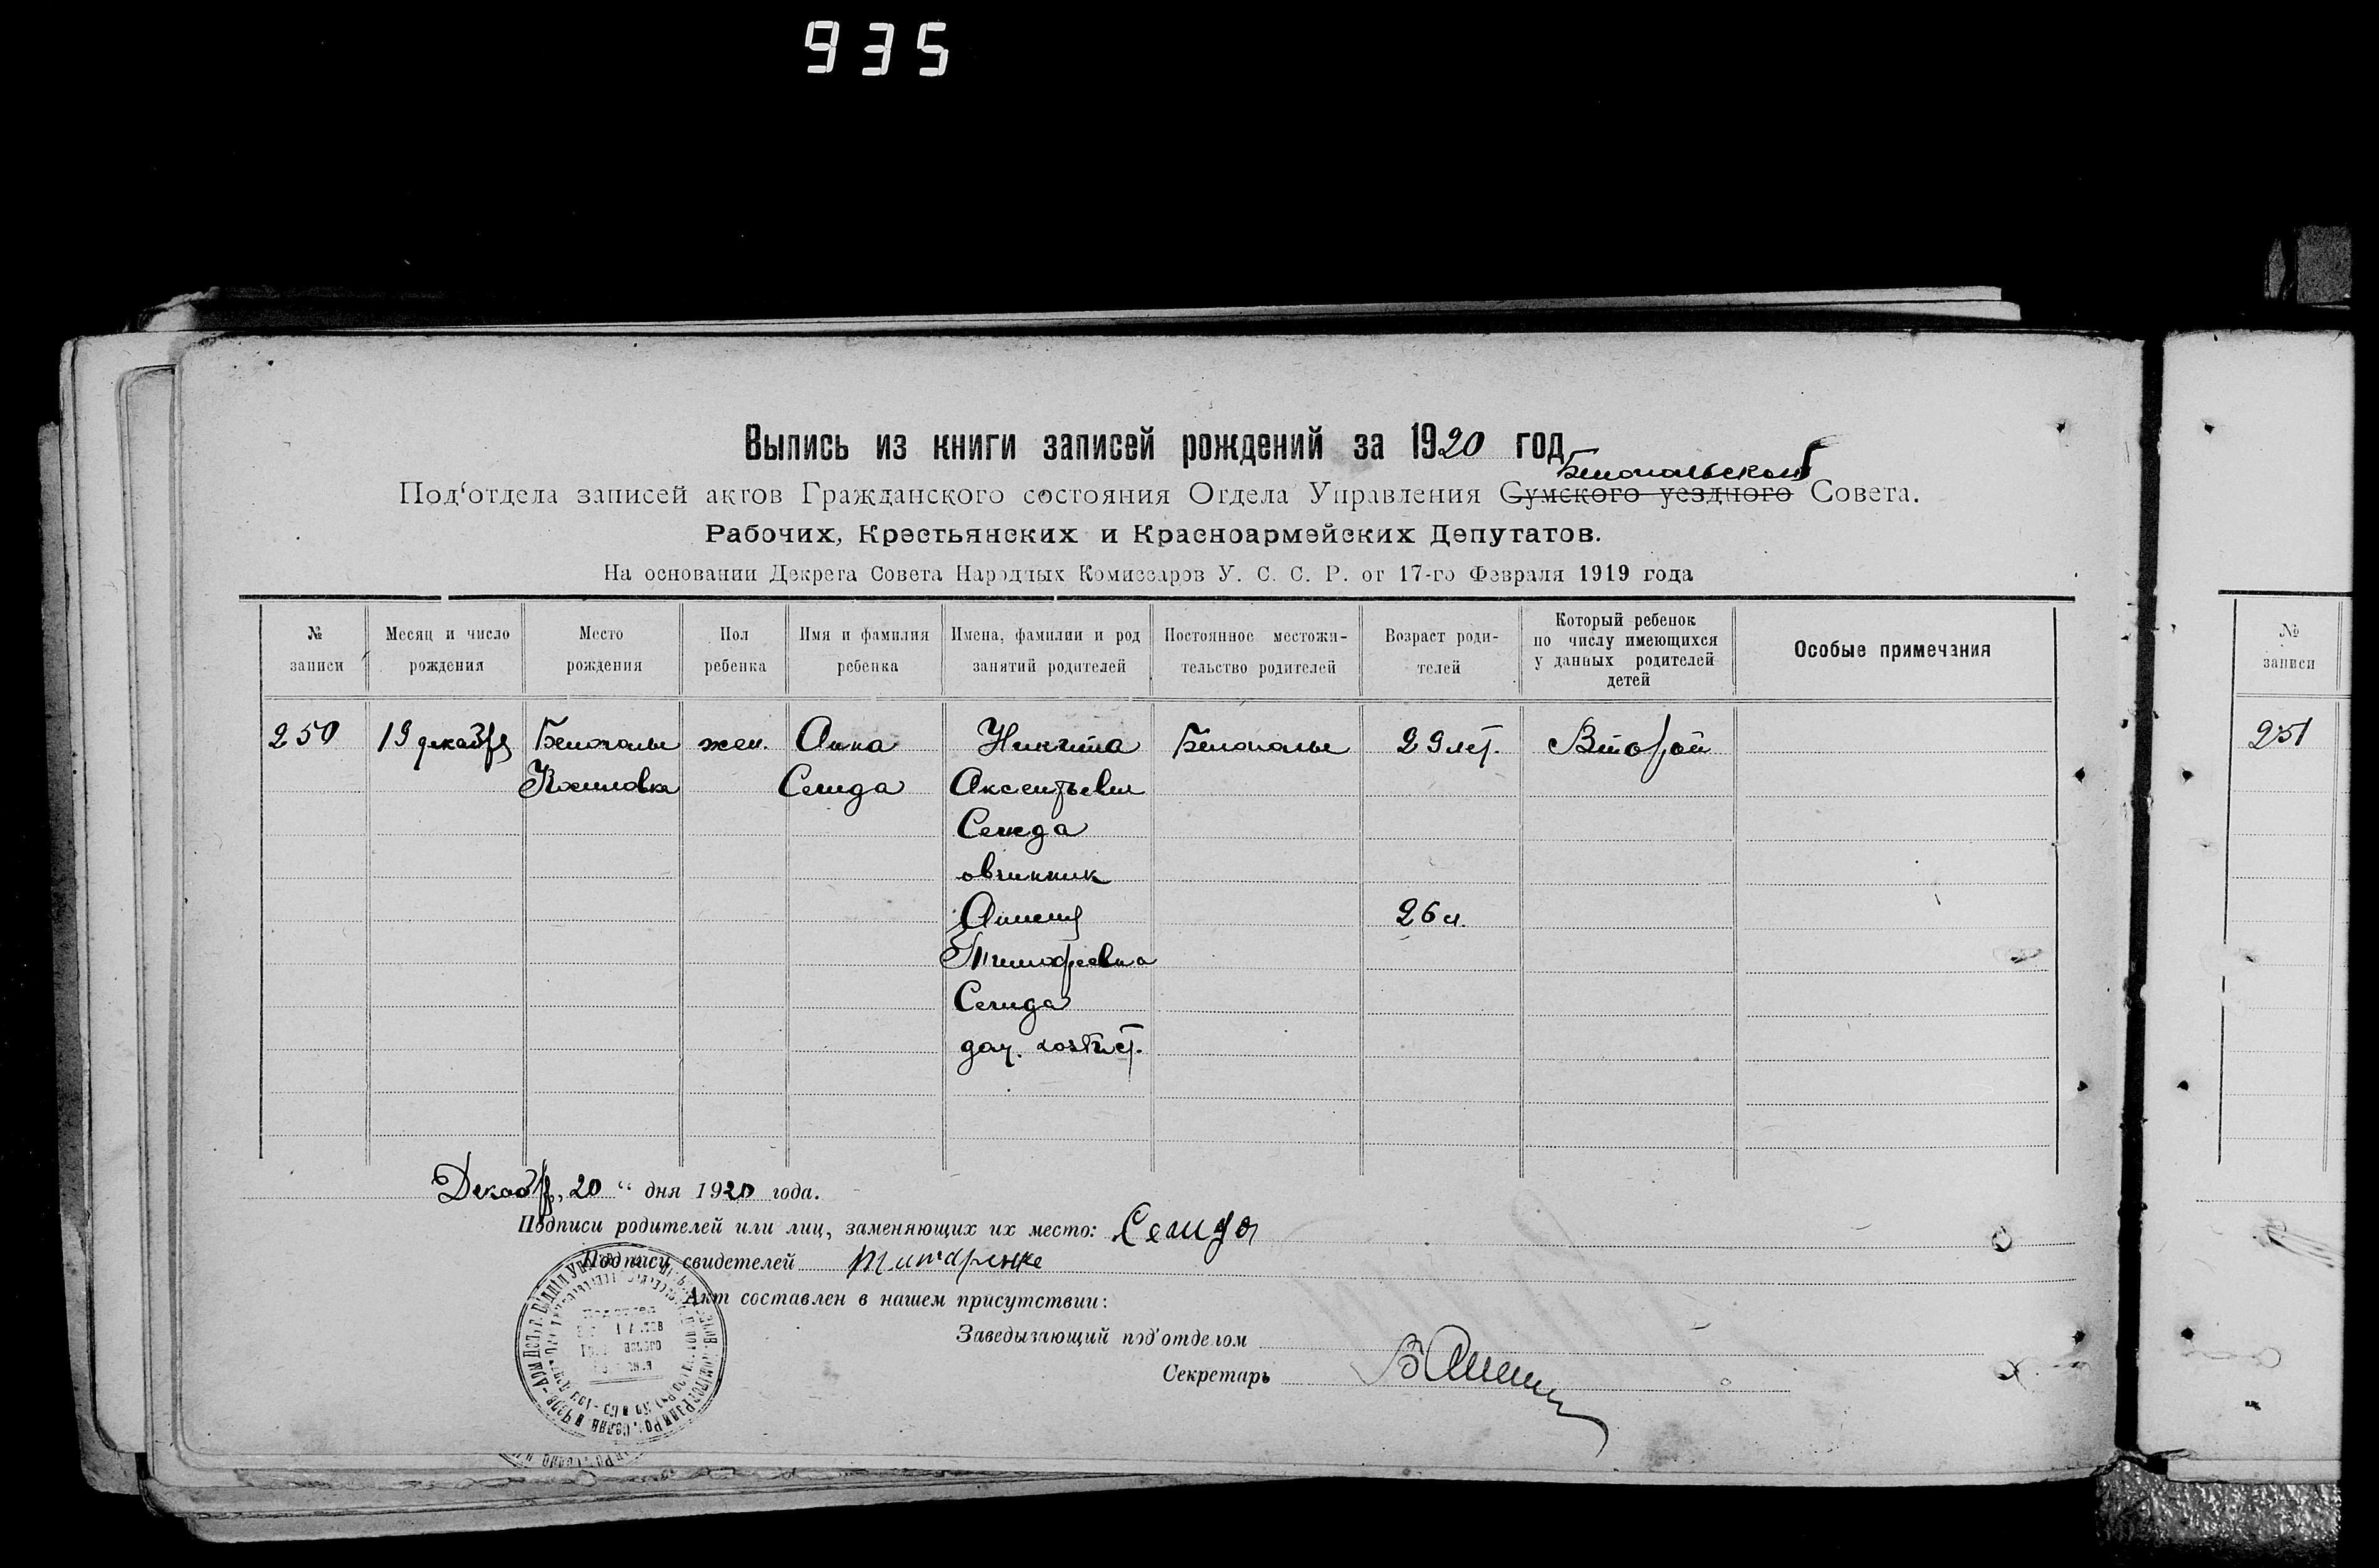 935
Выпись из книги записей рождений за 1920 год
Белопольского
Под‘отдела записей актов Гражданского состояния Отдела Управления Сумского уездного Совета.
Рабочих, Крестьянских и Красноармейских Депутатов.
На основании Декрета Совета Народных Комиссаров У. С. С. Р. от 17-го Февраля 1919 года
№ записи
Месяц и число рождения
Место рождения
Пол ребенка
Имя и фамилия ребенка
Имена, фамилии и род занятий родителей
Постоянное местожительство родителей
Возраст родителей
Который ребенок по числу имеющихся у данных родителей детей
Особые примечания
№ записи
250 19 декабря Белополье жен. Анна Никита Белополье 29 лет. Второй 251
Сегида Аксентьевич
Сегида
овчинник
26 л.
Тимофеевна
Сегида
дом. хозяист.
Декабр, 20 “ дня 1920 года.
Подписи родителей или лиц, заменяющих их место: Сегида
Подписи свидетелей Титаренко
Акт составлен в нашем присутствии:
Заведывающий под‘отделом
Секретарь